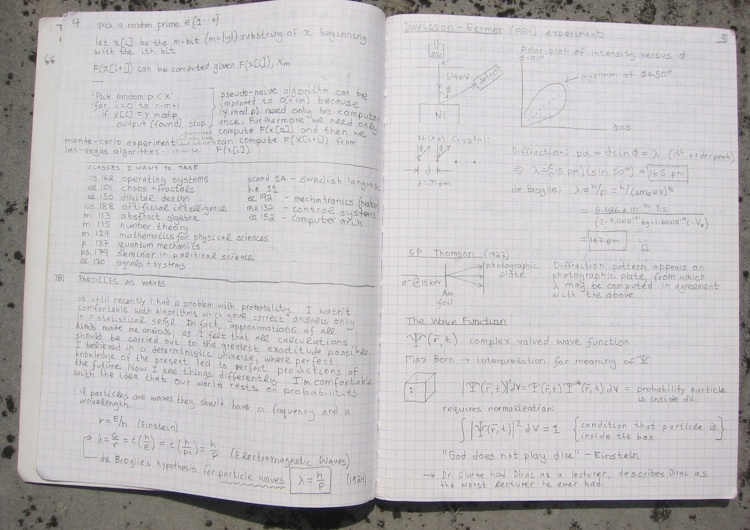 pick a random prime ∈{1..k}
let x[i] be the m-bit (m=|y|) substring of x beginning
with the ith bit
F(x[i+1]) can be computed given F(x[i]), Xm
Pick random p < k
for i=0 to n-m+1
if x[i] ≡ y mod p
output (found, stop)
pseudo-naive algorithm can be
improved to O(n+m) because
(y mod p) need only be computed
once. Furthermore we need only
compute F(x[0]) and then we
can compute F(x[i+1]) from
F(x[i])
monte-carlo experiment
las-vegas algorithms
66
CLASSES I WANT TO TAKE
cs 162 operating systems
ee 151 chaos + fractals
ee 150 digital design
cs 188 artificial intelligence
m 113 abstract algebra
m 115 number theory
m 129 mathematics for physical sciences
p 137 quantum mechanics
ps 179 seminar in political science
ee 120 signals + systems
scand 1A - swedish language
he 11
ee 192 - mechatronics
me 132 - control systems
cs 152 - computer arch
PARTICLES AS WAVES
until recently I had a problem with probability. I wasn't
comfortable with algorithms which gave correct answers only
in a statistical sense. In fact, approximations of all
kinds made me anxious, as I felt that all calculations
should be carried out to the greatest exactitude possible.
I believed in a deterministic universe, where perfect
knowledge of the present led to perfect predictions of
the future. Now I see things differently. I'm comfortable
with the idea that our world rests on probabilities
if particles are waves they should have a frequency and a
wavelength.
r = E/h (Einstein)
λ = c/r = c(h/E) = c(h/pc) = h/p (Electromagnetic Waves)
de Broglie's hypothesis for particle waves λ = h/p (1924)
Davisson - Germer experiment
5
54eV
Ni
detect
φ
Polar plot of intensity versus φ
φ=90°
maximum at φ=50°
φ=0
Nickel Crystal:
d
Diffraction: pd = d sin φ = λ (1st order peak)
⇒ λ = (215 pm)(sin 50°) = 165 pm
de Broglie: λ = h/p = h/(2meV)½
= 167 pm
GP Thomson (1927)
e- @ 15 keV
Au
foil
photographic
plate
Diffraction pattern appears on
photographic plate, from which
λ may be computed in agreement
with the above.
The Wave Function:
Ψ(r̄,t) complex valued wave function
Max Born → interpretation for meaning of Ψ.
|Ψ(r̄,t)|²dV = Ψ(r̄,t) Ψ*(r̄,t) dV = probability particle
is inside dV.
requires normalization:
∫|Ψ(r̄,t)|² dV = 1 {condition that particle is
inside the box}
"God does not play dice" - Einstein
→ Dr. Clarke had Dirac as a lecturer, describes Dirac as
the worst lecturer he ever had.